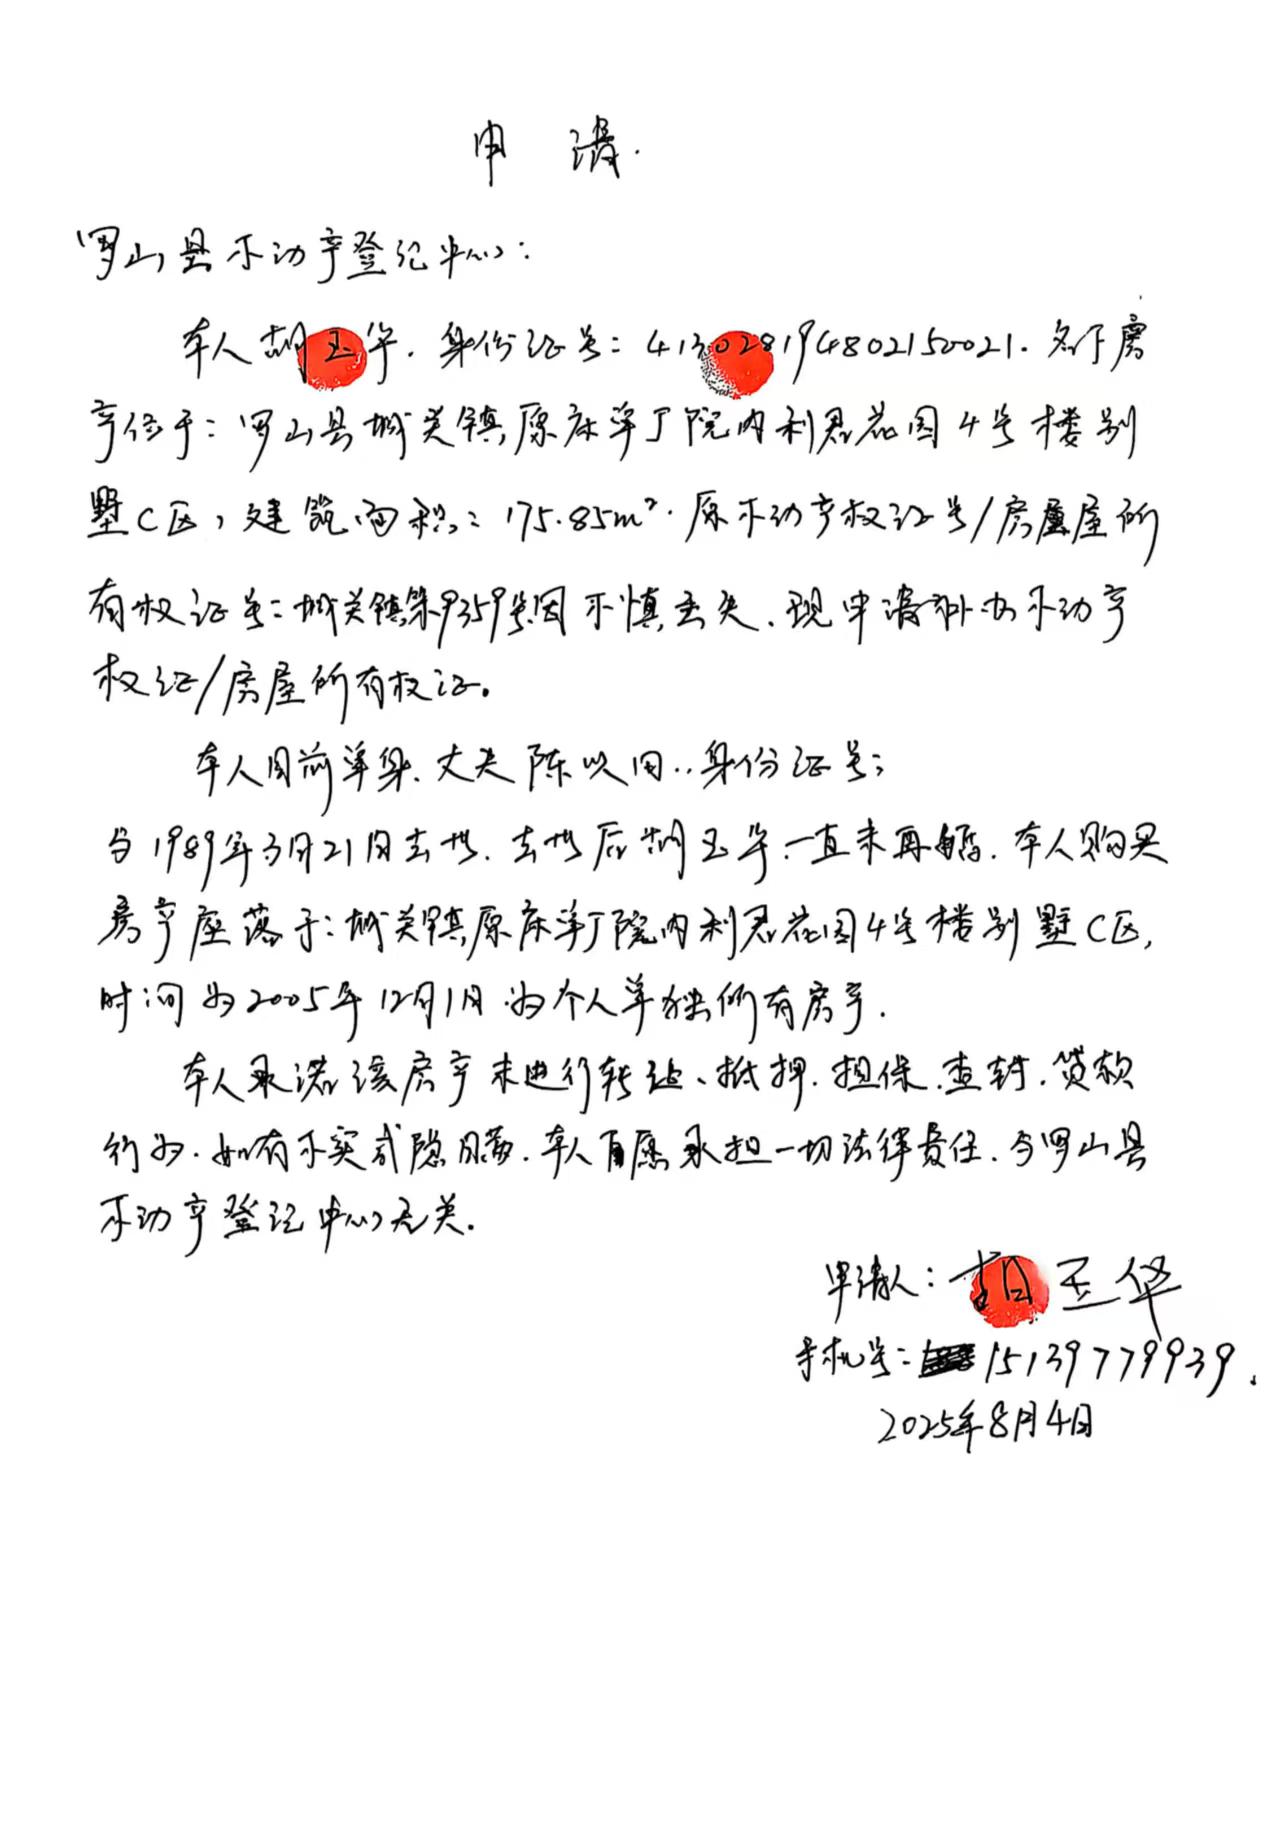 申 请.
罗山县不动产登记中心：
本人胡玉华.身份证号：413028194802150021.名下房
产位于：罗山县城关镇原麻纺厂院内利君花园4号楼别
墅C区，建筑面积：175.85m².原不动产权证号/房屋所
有权证号：城关镇第9359号因不慎丢失.现申请补办不动产
权证/房屋所有权证。
本人目前单身.丈夫陈以田..身份证号；
与1989年3月21日去世.去世后胡玉华一直未再婚.本人购买
房产座落于：城关镇原麻纺厂院内利君花园4号楼别墅C区,
时间为2005年12月1日.为个人单独所有房产.
本人承诺该房产未进行转让、抵押.担保.查封.贷款
行为.如有不实或隐瞒.本人自愿承担一切法律责任.与罗山县
不动产登记中心无关.
申请人：胡玉华
手机号：15139779939.
2025年8月4日